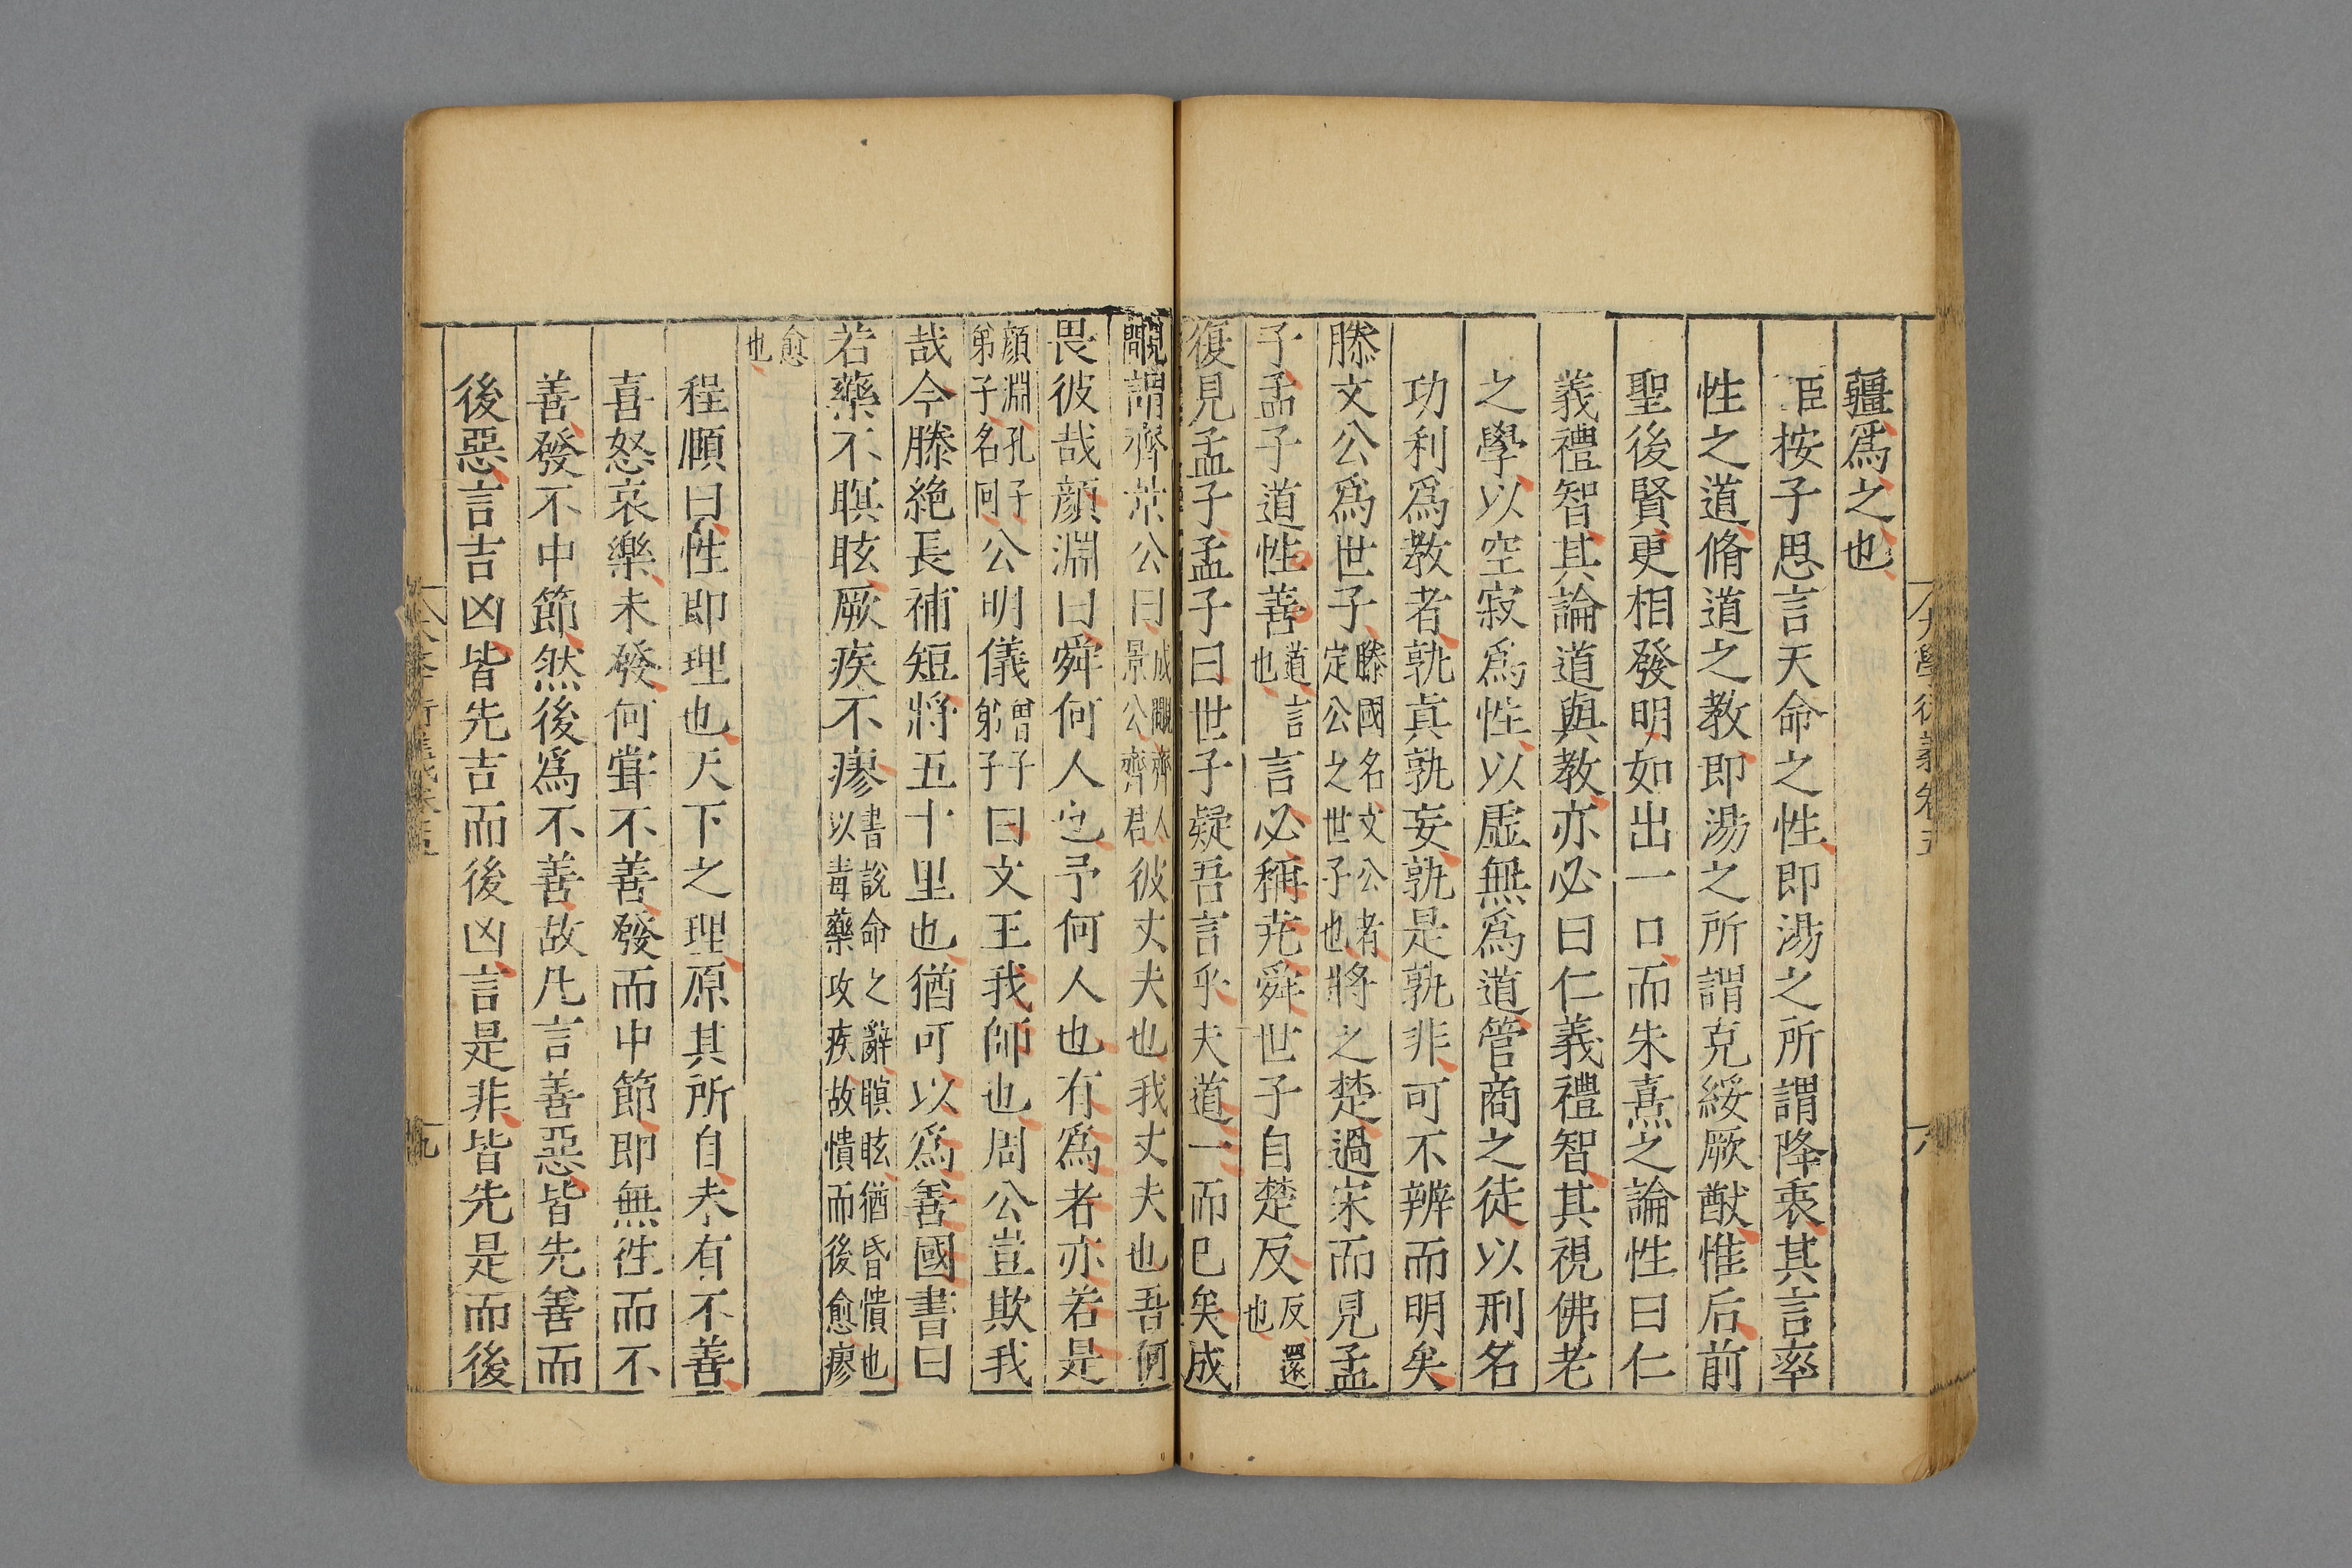 大學衍義卷五
八
疆爲之也
臣按子思言天命之性即湯之所謂降衷其言率
性之道脩道之教即湯之所謂克綏厥猷惟后前
聖後賢更相發明如出一口而朱熹之論性曰仁
義禮智其論道與教亦必曰仁義禮智其視佛老
之學以空寂爲性以虛無爲道管商之徒以刑名
功利爲教者孰真孰妄孰是孰非可不辨而明矣
滕文公爲世子滕國名文公者定公之世子也將之楚過宋而見孟
子孟子道性善道言也言必稱堯舜世子自楚反反還也
復見孟子孟子曰世子疑吾言乎夫道一而已矣成
覵謂齊景公曰成覵齊人景公齊君彼丈夫也我丈夫也吾何
畏彼哉顏淵曰舜何人也予何人也有爲者亦若是
顏淵孔子弟子名回公明儀曾子弟子曰文王我師也周公豈欺我
哉今滕絶長補短將五十里也猶可以爲善國書曰
若藥不瞑眩厥疾不瘳書說命之辭瞑眩猶昏憒也以毒藥攻疾故憒而後愈瘳
愈也
程頤曰性即理也天下之理原其所自未有不善
喜怒哀樂未發何甞不善發而中節即無徃而不
善發不中節然後爲不善故凡言善惡皆先善而
後惡言吉凶皆先吉而後凶言是非皆先是而後
九